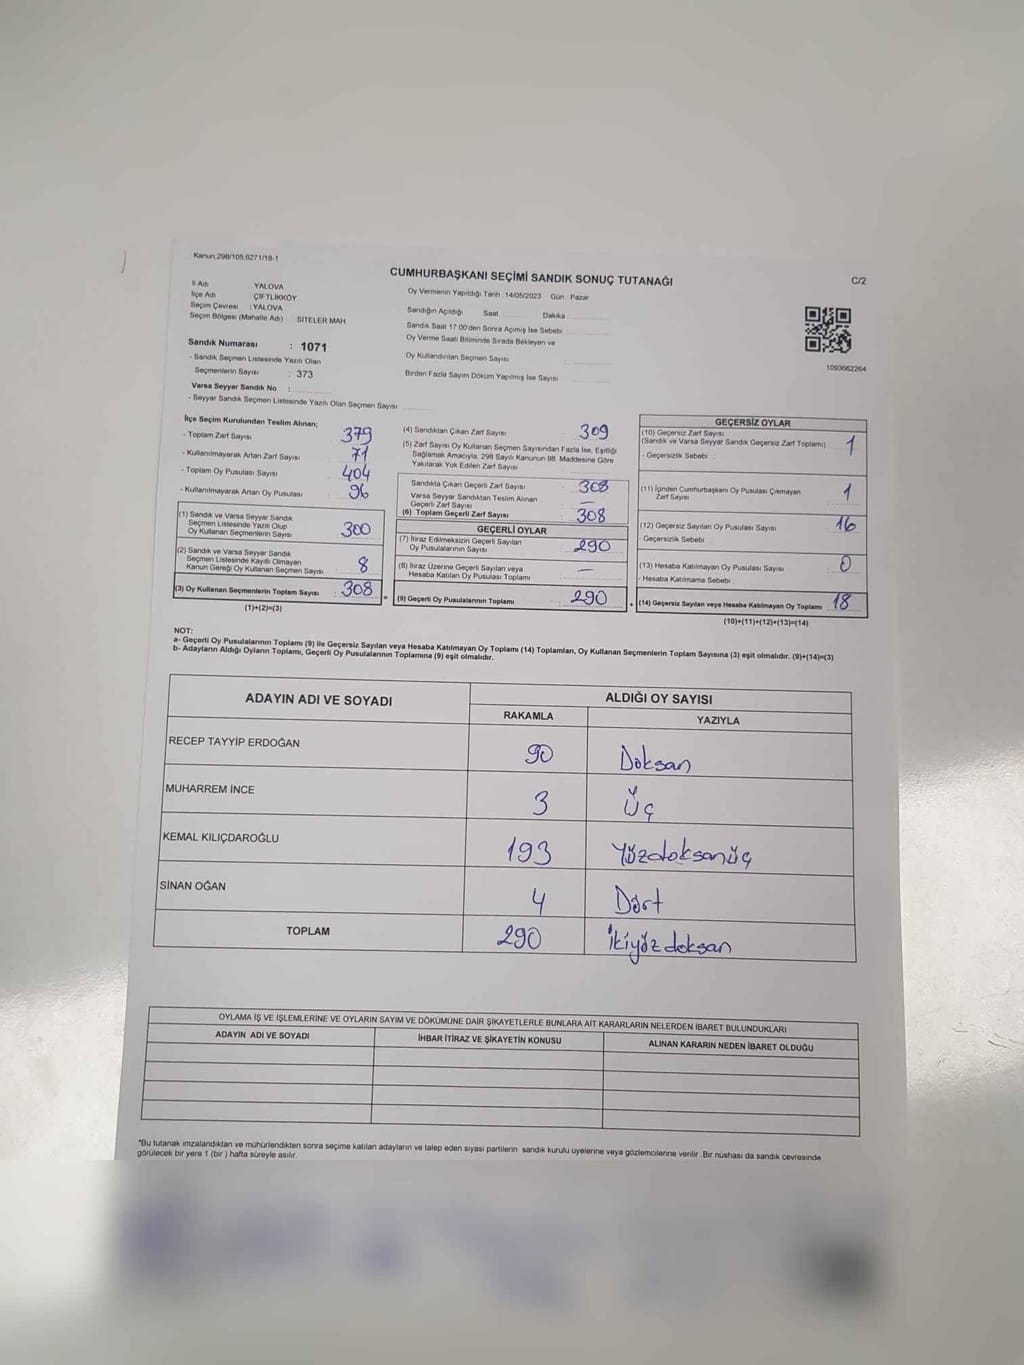 Kanun,298/105,6271/18-1
CUMHURBAŞKANI SEÇİMİ SANDIK SONUÇ TUTANAĞI
C/2
İl Adı YALOVA
İlçe Adı ÇİFTLİKKÖY
Seçim Çevresi : YALOVA
Seçim Bölgesi (Mahalle Adı) SİTELER MAH.
Oy Vermenin Yapıldığı Tarih : 14/05/2023 Gün : Pazar
Sandığın Açıldığı Saat Dakika
Sandık Saat 17:00'den Sonra Açımış İse Sebebi
Oy Verme Saati Bitiminde Sırada Bekleyen ve
Oy Kullandırılan Seçmen Sayısı
Birden Fazla Sayım Döküm Yapılmış İse Sayısı
1093662264
Sandık Numarası : 1071
- Sandık Seçmen Listesinde Yazılı Olan
Seçmenlerin Sayısı : 373
Varsa Seyyar Sandık No :
- Seyyar Sandık Seçmen Listesinde Yazılı Olan Seçmen Sayısı
İlçe Seçim Kurulundan Teslim Alınan;
- Toplam Zarf Sayısı 379
- Kullanılmayarak Artan Zarf Sayısı 71
- Toplam Oy Pusulası Sayısı 404
- Kullanılmayarak Artan Oy Pusulası 96
(1) Sandık ve Varsa Seyyar Sandık
Seçmen Listesinde Yazılı Olup
Oy Kullanan Seçmenlerin Sayısı 300
(2) Sandık ve Varsa Seyyar Sandık
Seçmen Listesinde Kayıtlı Olmayan
Kanun Gereği Oy Kullanan Seçmen Sayısı 8
(3) Oy Kullanan Seçmenlerin Toplam Sayısı 308
(1)+(2)=(3)
(4) Sandıktan Çıkan Zarf Sayısı 309
(5) Zarf Sayısı Oy Kullanan Seçmen Sayısından Fazla İse, Eşitliği
Sağlamak Amacıyla, 298 Sayılı Kanunun 98. Maddesine Göre
Yakılarak Yok Edilen Zarf Sayısı
Sandıkta Çıkan Geçerli Zarf Sayısı 308
Varsa Seyyar Sandıktan Teslim Alınan
Geçerli Zarf Sayısı —
(6) Toplam Geçerli Zarf Sayısı 308
GEÇERLİ OYLAR
(7) İtiraz Edilmeksizin Geçerli Sayılan
Oy Pusulalarının Sayısı 290
(8) İtiraz Üzerine Geçerli Sayılan veya
Hesaba Katılan Oy Pusulası Toplamı —
(9) Geçerli Oy Pusulalarının Toplamı 290
GEÇERSİZ OYLAR
(10) Geçersiz Zarf Sayısı
(Sandık ve Varsa Seyyar Sandık Geçersiz Zarf Toplamı) 1
- Geçersizlik Sebebi :
(11) İçinden Cumhurbaşkanı Oy Pusulası Çıkmayan
Zarf Sayısı 1
(12) Geçersiz Sayılan Oy Pusulası Sayısı 16
- Geçersizlik Sebebi
(13) Hesaba Katılmayan Oy Pusulası Sayısı 0
- Hesaba Katılmama Sebebi :
(14) Geçersiz Sayılan veya Hesaba Katılmayan Oy Toplamı 18
(10)+(11)+(12)+(13)=(14)
NOT:
a- Geçerli Oy Pusulalarının Toplamı (9) ile Geçersiz Sayılan veya Hesaba Katılmayan Oy Toplamı (14) Toplamları, Oy Kullanan Seçmenlerin Toplam Sayısına (3) eşit olmalıdır. (9)+(14)=(3)
b- Adayların Aldığı Oyların Toplamı, Geçerli Oy Pusulalarının Toplamına (9) eşit olmalıdır.
ADAYIN ADI VE SOYADI ALDIĞI OY SAYISI
RAKAMLA YAZIYLA
RECEP TAYYİP ERDOĞAN 90 Doksan
MUHARREM İNCE 3 Üç
KEMAL KILIÇDAROĞLU 193 Yüzdoksanüç
SİNAN OĞAN 4 Dört
TOPLAM 290 İkiyüzdoksan
OYLAMA İŞ VE İŞLEMLERİNE VE OYLARIN SAYIM VE DÖKÜMÜNE DAİR ŞİKAYETLERLE BUNLARA AİT KARARLARIN NELERDEN İBARET BULUNDUKLARI
ADAYIN ADI VE SOYADI İHBAR İTİRAZ VE ŞİKAYETİN KONUSU ALINAN KARARIN NEDEN İBARET OLDUĞU
*Bu tutanak imzalandıktan ve mühürlendikten sonra seçime katılan adayların ve talep eden siyasi partilerin sandık kurulu üyelerine veya gözlemcilerine verilir. Bir nüshası da sandık çevresinde
görülecek bir yere 1 (bir ) hafta süreyle asılır.